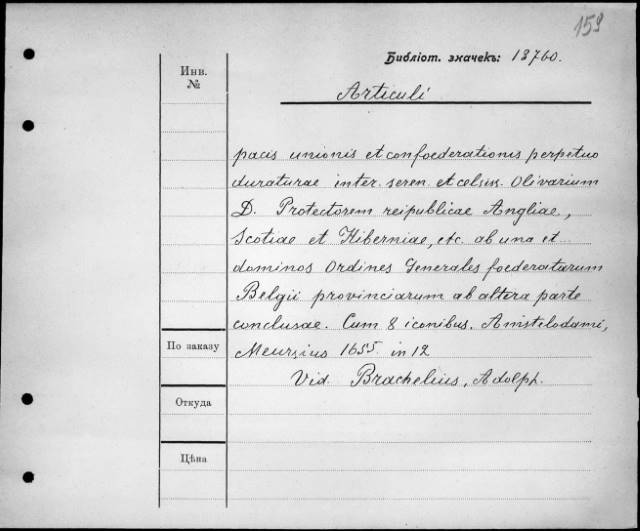 159
Библіот. значекъ: 13760.
Инв.
№
Articuli
pacis unionis et confoederationis perpetuo
duraturae inter seren. et celsis. Olivarium
D. Protectorem reipublicae Angliae,
Scotiae et Hiberniae, etc. ab una et
dominos Ordines Generales foederatarum
Belgii provinciarum ab altera parte
conclusae. Cum 8 iconibus. Amstelodami,
По заказу
Meursius 1655. in 12
Vid. Brachelius, Adolph.
Откуда
Цѣна